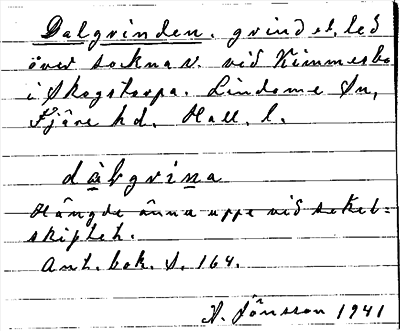 Dalgrinden. grind el. led
över socknav. vid Kimmesbo
i Skogstorpa. Lindome Sn,
Fjäre hd. Hall. l.
dàlgrina
Hängde ännu uppe vid sekel=
skiftet.
Ant. bok. S. 164.
A. Jönsson 1941